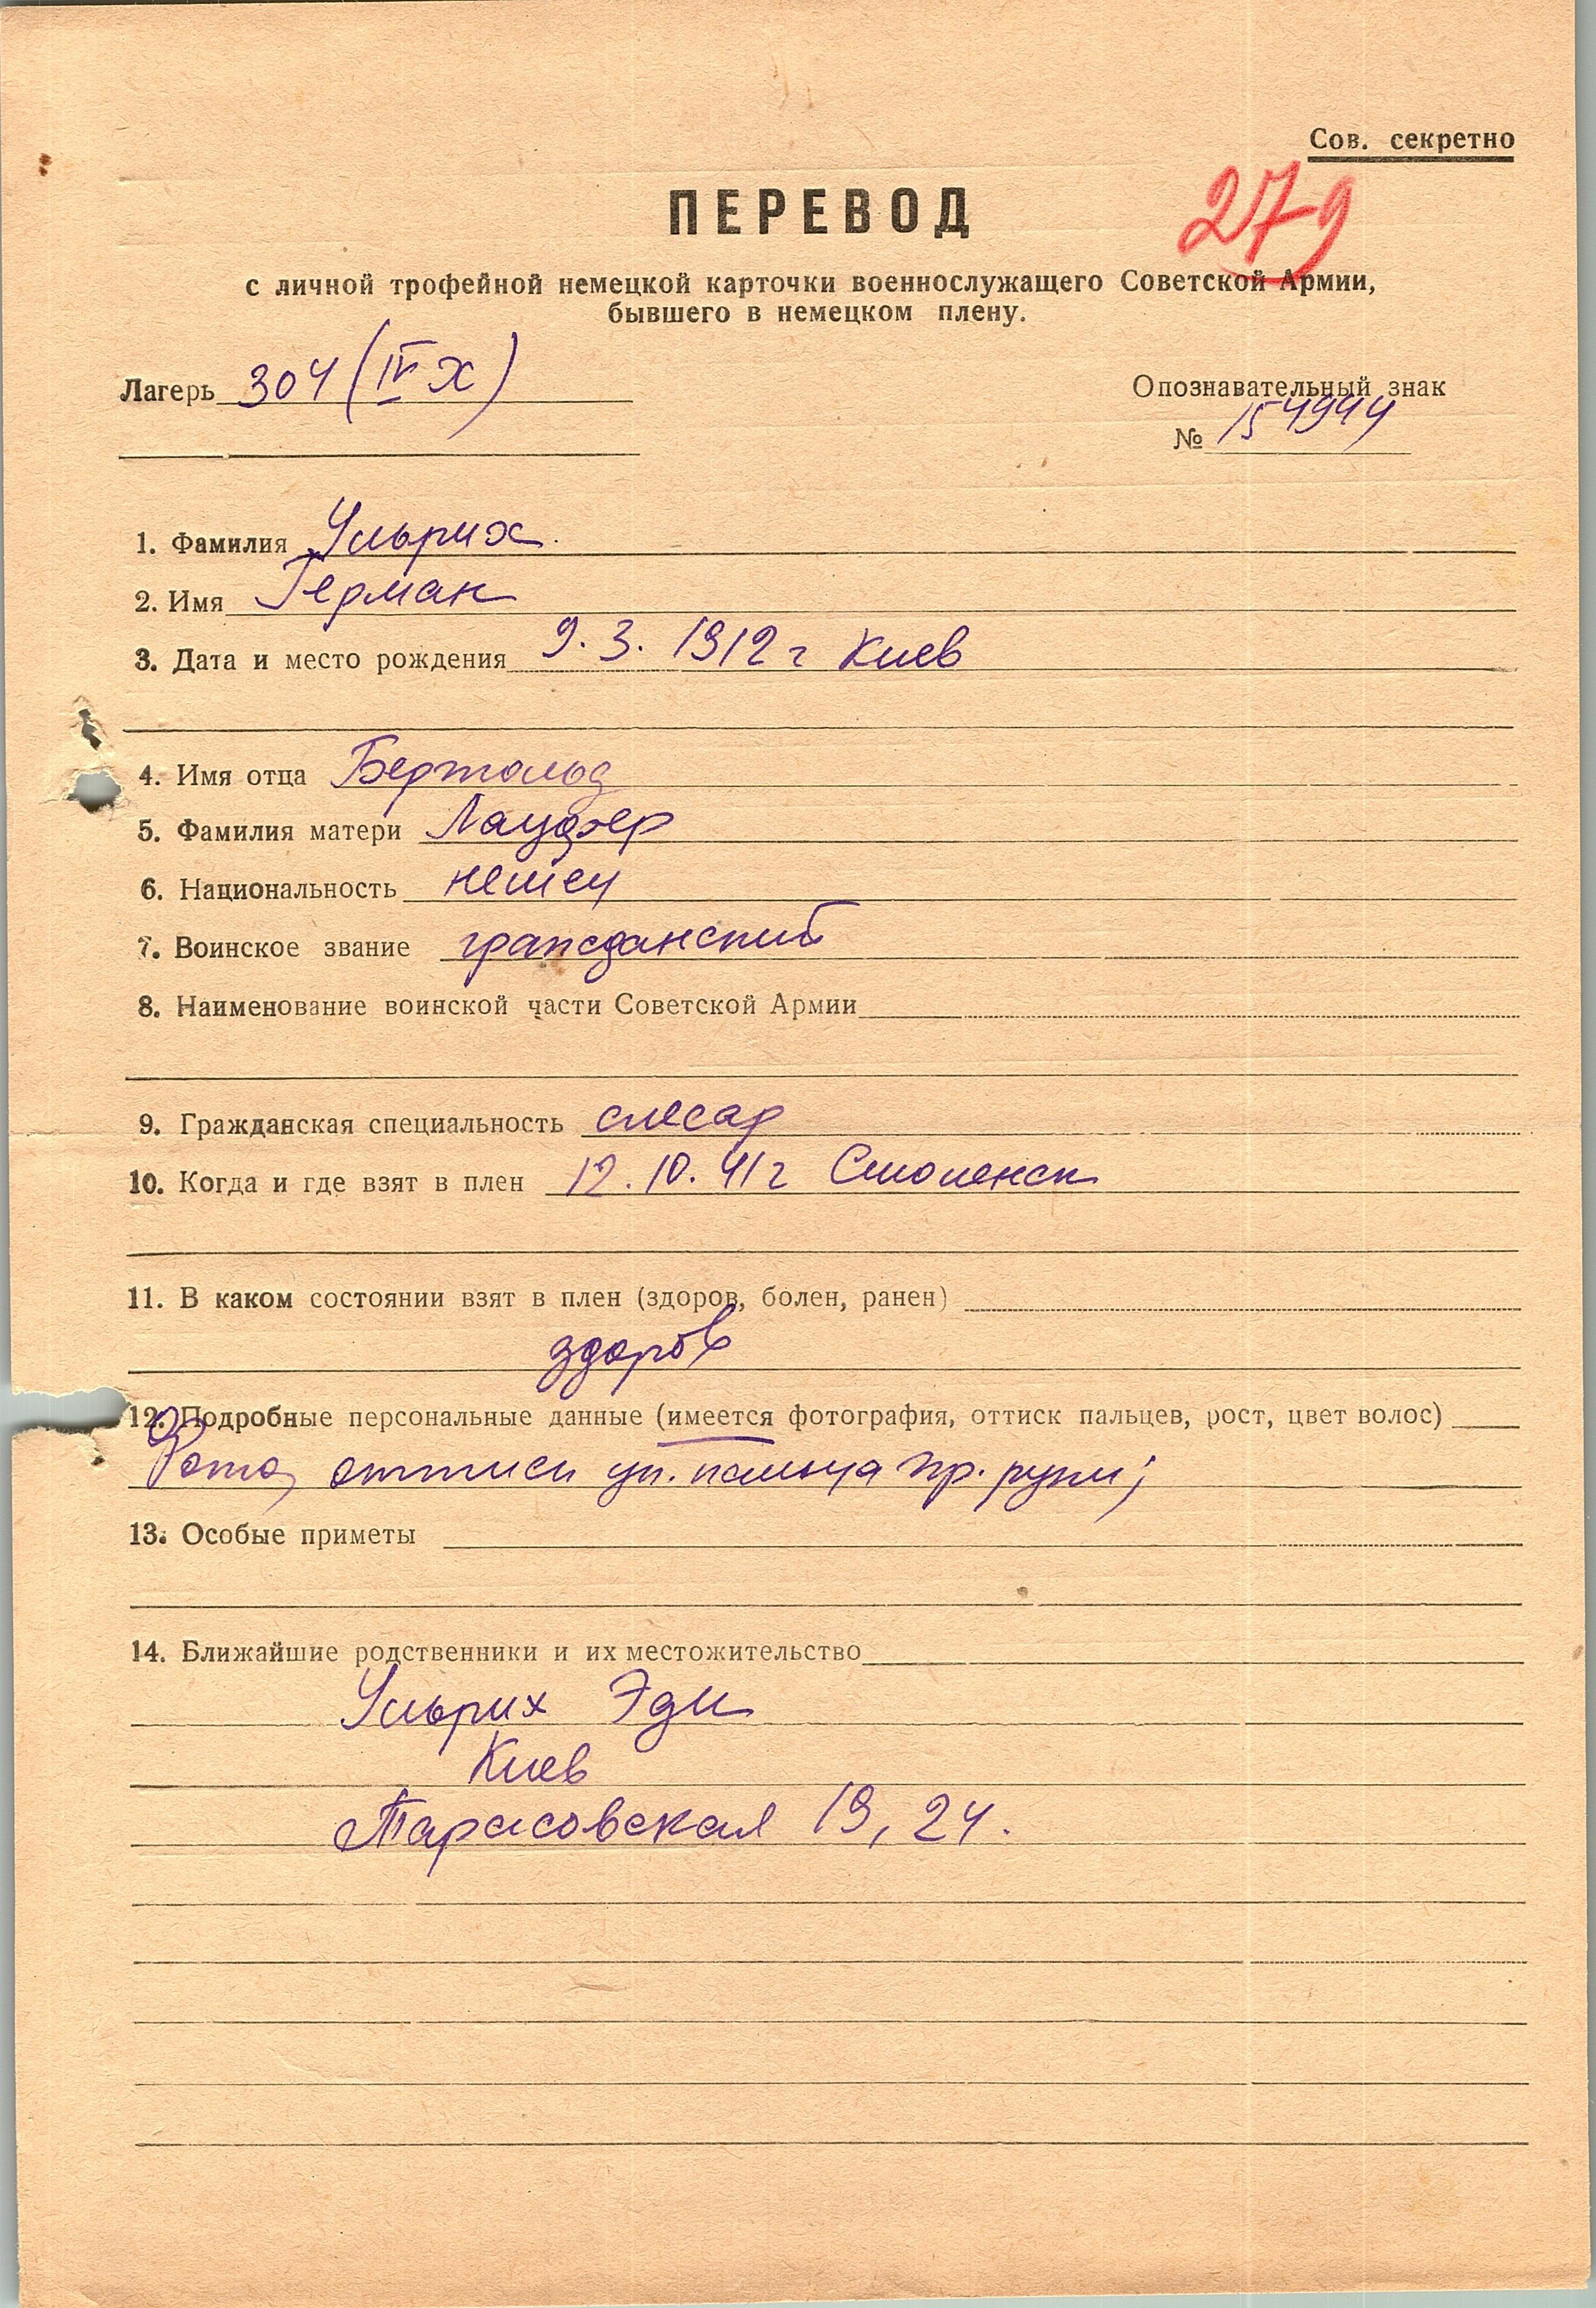 Сов. секретно
279
ПЕРЕВОД
с личной трофейной немецкой карточки военнослужащего Советской Армии,
бывшего в немецком плену.
Лагерь 304 (IV Х)
Опознавательный знак
№ 154944
1. Фамилия Ульрих.
2. Имя Герман
3. Дата и место рождения 9. 3. 1912 г Киев
4. Имя отца Бертольд
5. Фамилия матери Лауфер
6. Национальность немец
7. Воинское звание гражданский
8. Наименование воинской части Советской Армии
9. Гражданская специальность слесар
10. Когда и где взят в плен 12. 10. 41 г Смоленск
11. В каком состоянии взят в плен (здоров, болен, ранен)
здоров
12. Подробные персональные данные (имеется фотография, оттиск пальцев, рост, цвет волос)
Фото, оттиск ук. пальца пр. руки;
13. Особые приметы
14. Ближайшие родственники и их местожительство
Ульрих Эди
Киев
Тарасовская 19, 24.